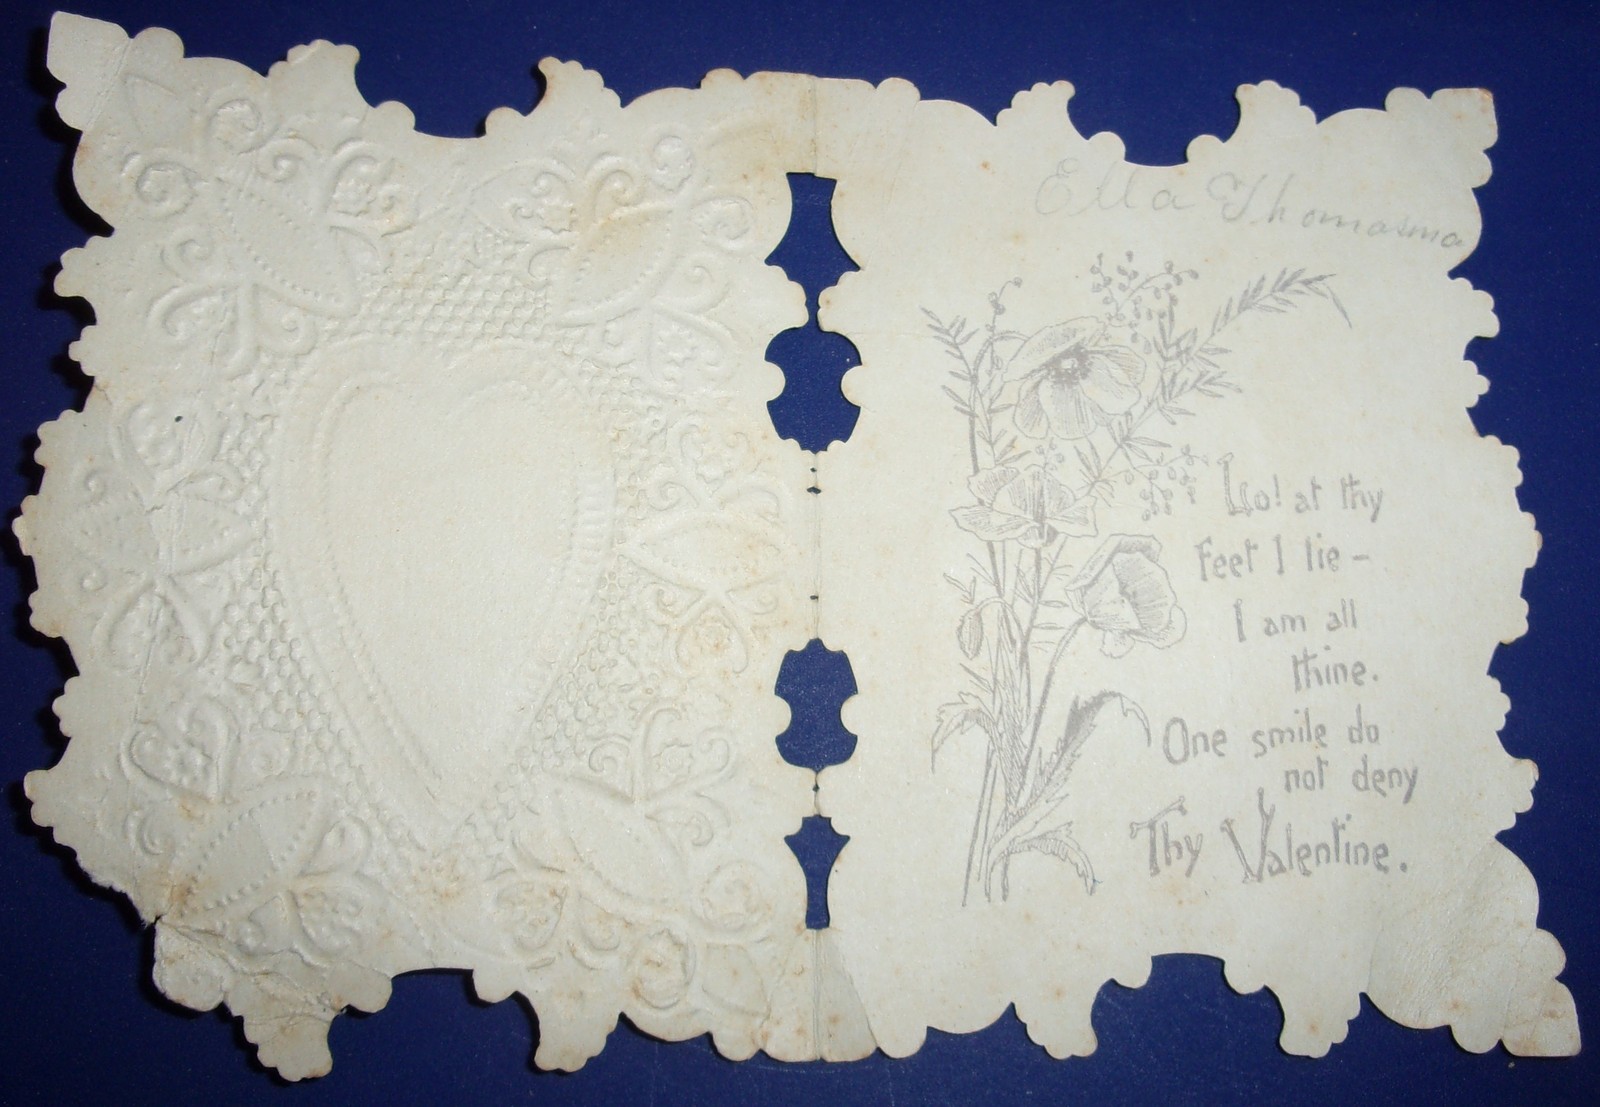 Ella Thomasma
Lo! at thy
feet I lie –
I am all
thine.
One smile do
not deny
Thy Valentine.